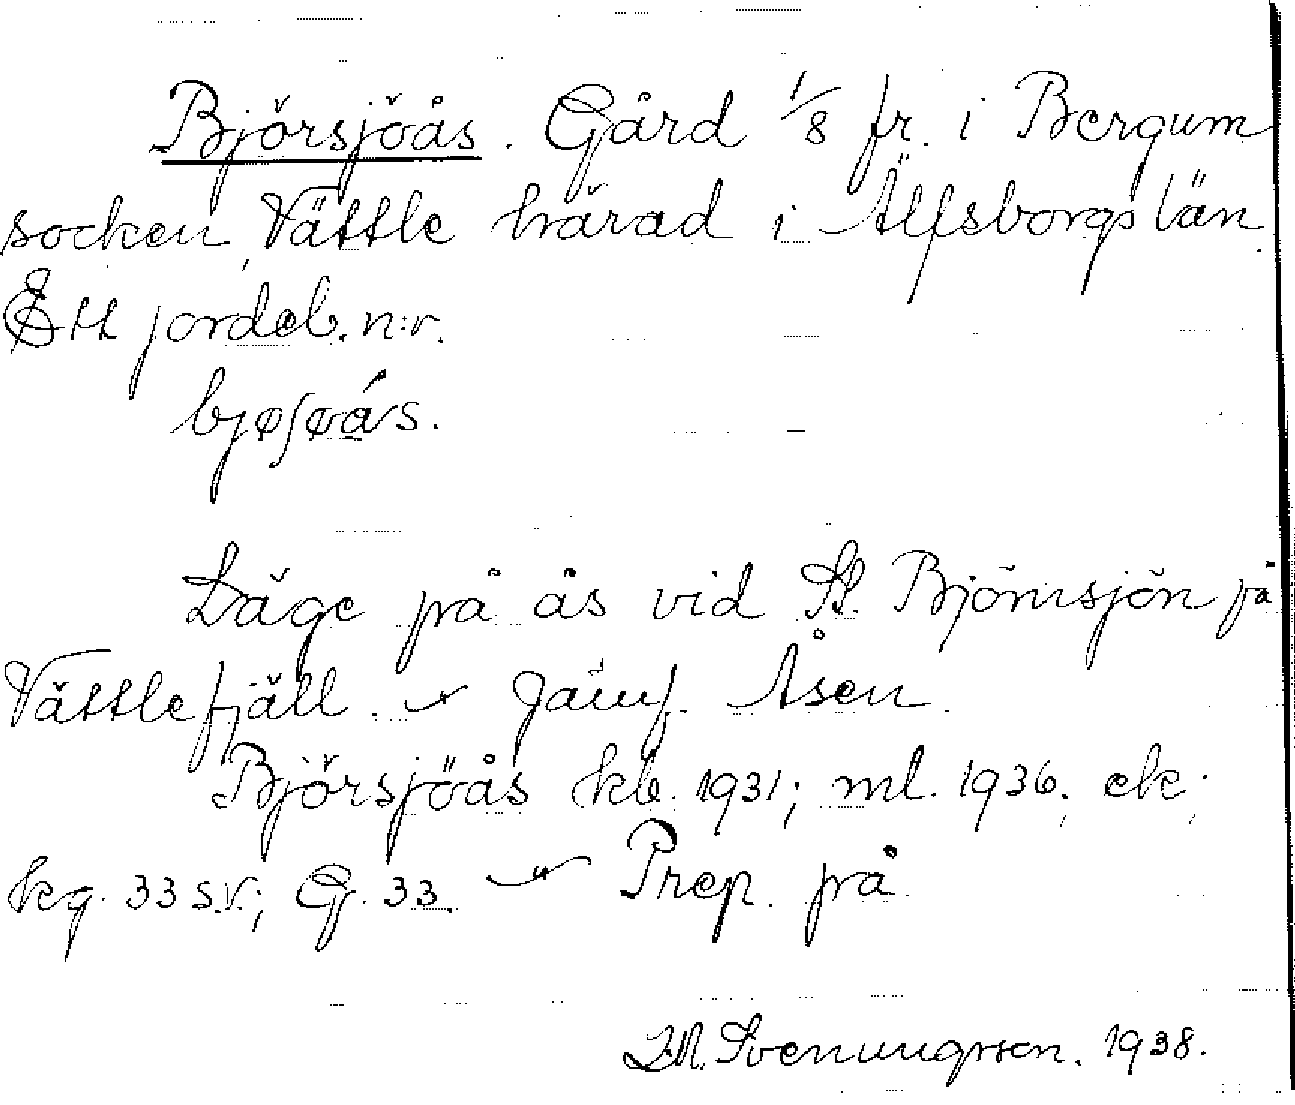 Björsjöås. Gård 1/8 fr. i Bergum
socken, Vättle härad i Älfsborgs län.
Ett jordeb. n:r.
bjøʃøás.
Läge på ås vid St. Björnsjön på
Vättlefjäll. — Jämf. Åsen.
Björsjöås kb. 1931; ml. 1936; ek;
kg. 33 SV; G. 33. — Prep. på
Svenungsson. 1938.